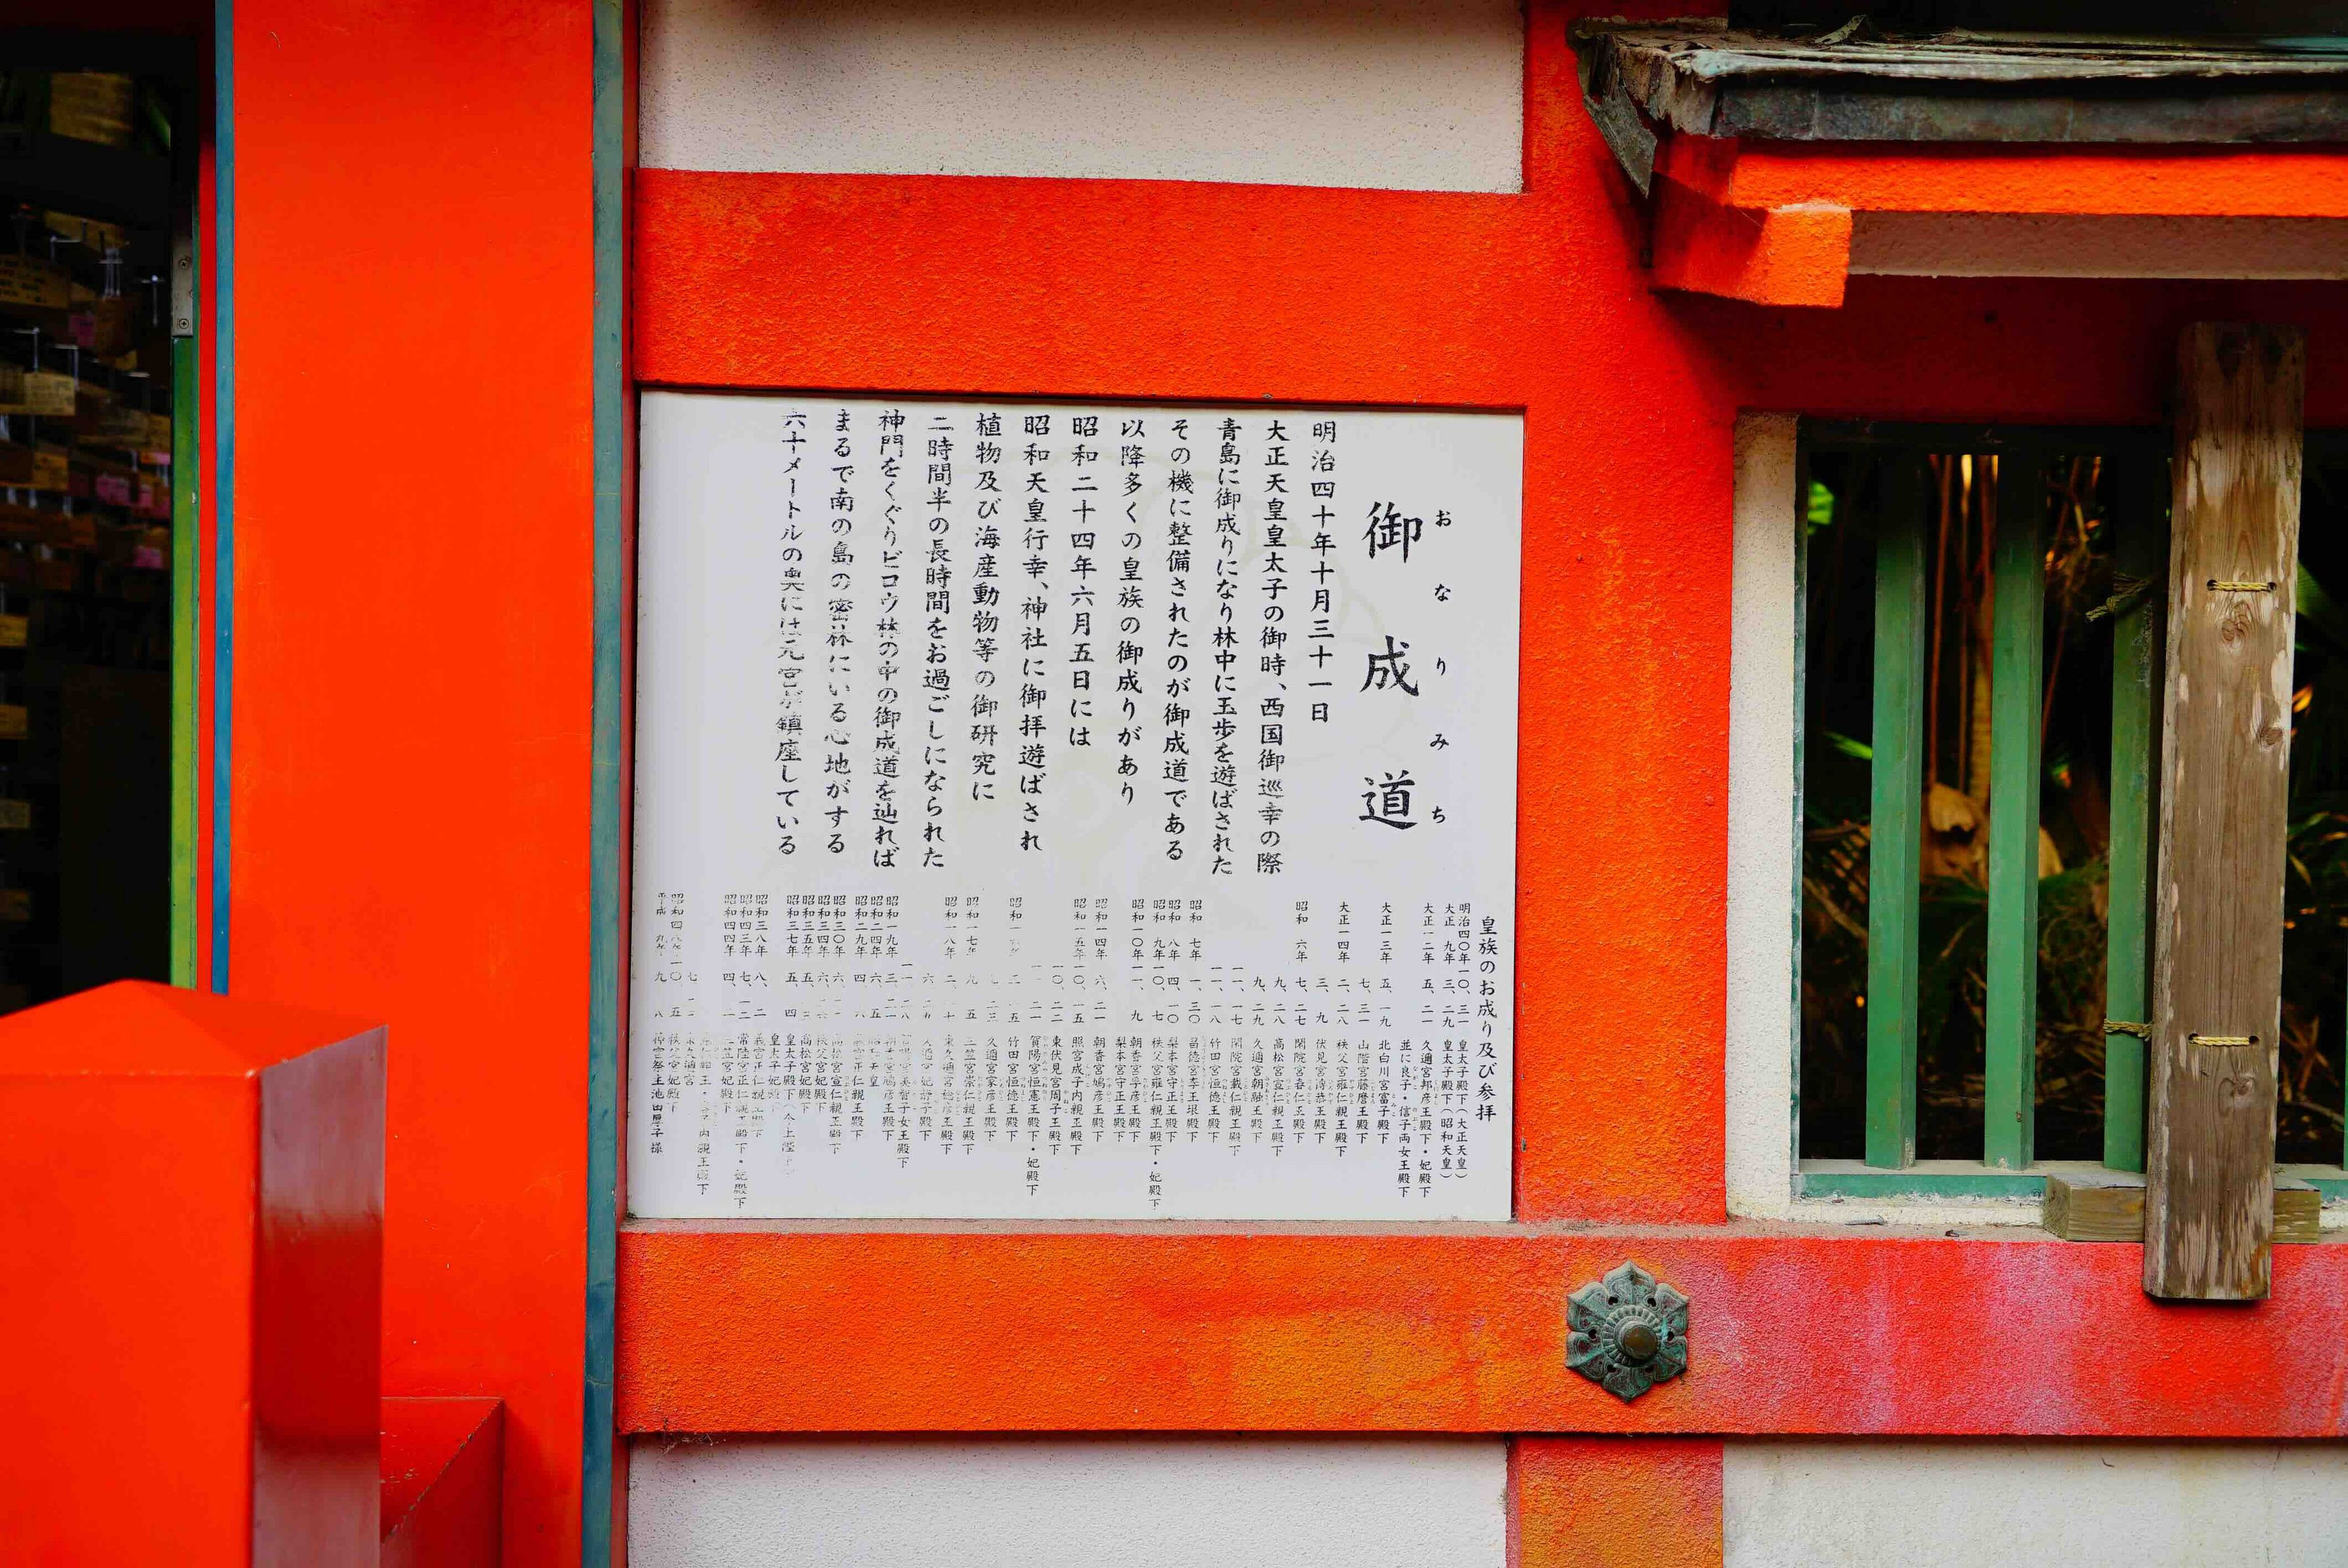 御成道
おなりみち
明治四十年十月三十一日
大正天皇皇太子の御時、西国御巡幸の際
青島に御成りになり林中に玉歩を遊ばされた
その機に整備されたのが御成道である
以降多くの皇族の御成りがあり
昭和二十四年六月五日には
昭和天皇行幸、神社に御拝遊ばされ
植物及び海産動物等の御研究に
二時間半の長時間をお過ごしになられた
神門をくぐりビロウ林の中の御成道を辿れば
まるで南の島の密林にいる心地がする
六十メートルの奥には元宮が鎮座している
皇族のお成り及び参拝
明治四〇年一〇、三一 皇太子殿下(大正天皇)
大正 九年 三、二九 皇太子殿下(昭和天皇)
大正一二年 五、二一 久邇宮邦彦王殿下・妃殿下
並に良子・信子両女王殿下
大正一三年 五、一九 北白川宮富子殿下
七、三一 山階宮藤麿王殿下
大正一四年 二、二八 秩父宮雍仁親王殿下
三、九 伏見宮博恭王殿下
昭和 六年 七、二七 閑院宮春仁王殿下
九、二八 高松宮宣仁親王殿下
九、二九 久邇宮朝融王殿下
一一、一七 閑院宮載仁親王殿下
一一、一八 竹田宮恒徳王殿下
昭和 七年 一、三〇 昌徳宮李王垠殿下
昭和 八年 四、一〇 梨本宮守正王殿下
昭和 九年一〇、七 秩父宮雍仁親王殿下・妃殿下
昭和一〇年一一、九 朝香宮孚彦王殿下
梨本宮守正王殿下
昭和一四年 六、二一 朝香宮鳩彦王殿下
昭和一五年一〇、一五 照宮成子内親王殿下
一〇、二二 東伏見宮周子殿下
一一、二一 賀陽宮恒憲王殿下・妃殿下
二、一五 竹田宮恒徳王殿下
久邇宮家彦王殿下
昭和一七年 九、五 三笠宮崇仁親王殿下
昭和一八年 二、
昭和一九年 三、
昭和二四年 六、五 昭和天皇
昭和二九年 四、八 義宮正仁親王殿下
昭和三〇年 六、 高松宮宣仁親王殿下
昭和三四年 六、 秩父宮妃殿下
昭和三五年 五、 高松宮妃殿下
昭和三七年 五、四 皇太子殿下
皇太子妃殿下
昭和三八年 八、二 義宮正仁親王殿下
昭和四三年 七、一三 常陸宮正仁親王殿下・妃殿下
昭和四四年 四、 三笠宮妃殿下
昭和四八年一〇、五 秩父宮妃殿下
平成 九年 九、八 神宮祭主池田厚子様